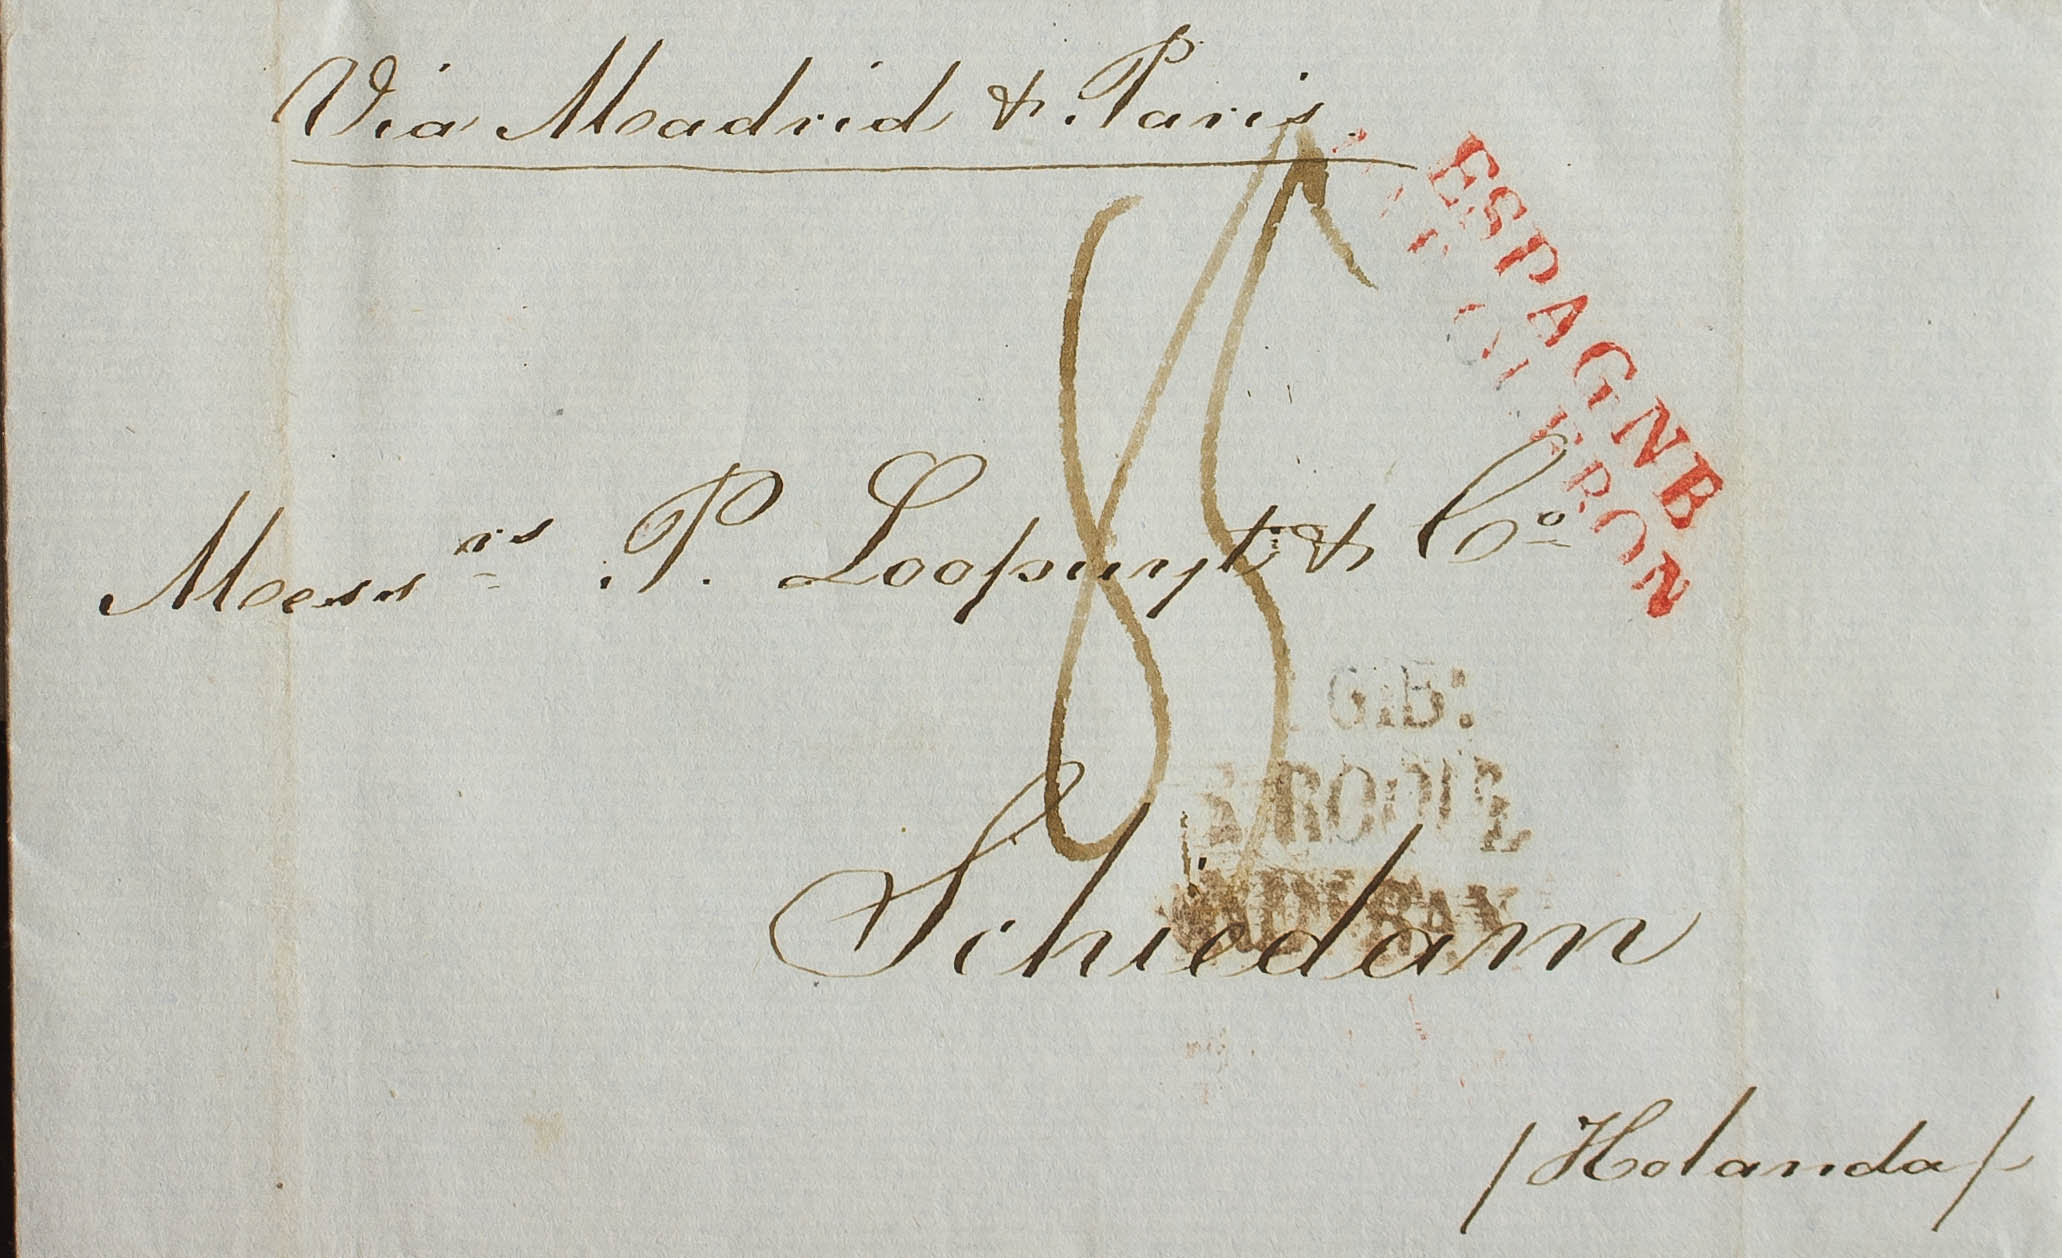 Via Madrid & Paris.
ESPAGNE
OLERON
85
Messrs P. Loopuyt & Co
GIB:
S. ROQUE
Schiedam
/Holanda/